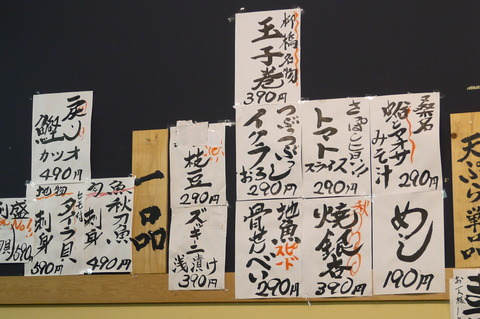 柳橋名物
玉子巻
390円
桑名
蛤とアオサ
みそ汁
290円
さっぱりヒンヤリ
トマト
スライス
290円
つぶっつぶし
イクラ
おろし
290円
炭火
鰹
カツオ
490円
一品
枝豆
290円
ズッキーニ
浅漬け
390円
めし
190円
秋
焼銀杏
390円
地魚
スピード
骨せんべい
290円
旬
秋刀魚
刺身
490円
地物
タイラ貝
刺身
590円
刺盛
No.1
天ぷら